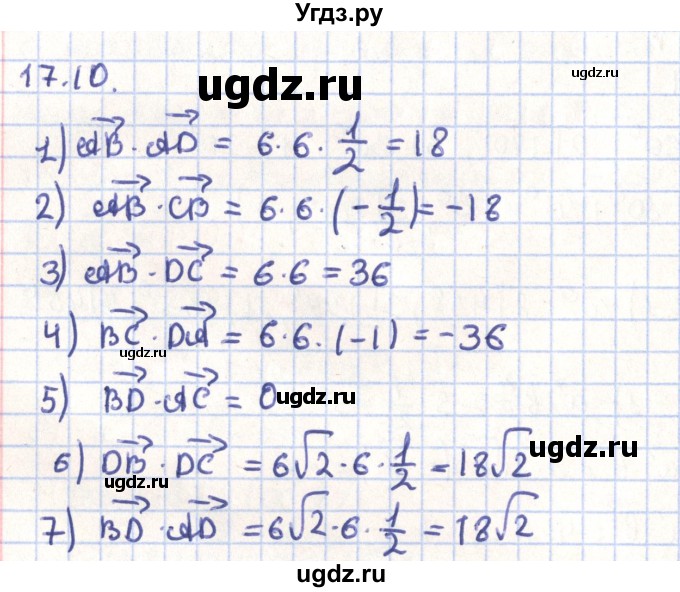 Угдз.ру
17.10.
ugdz.ru
ugdz.ru
1) AB · AD = 6·6·1/2 = 18
2) AB · CB = 6·6·(-1/2) = -18
3) AB · DC = 6·6 = 36
4) BC · DA = 6·6·(-1) = -36
ugdz.ru
5) BD · AC = 0
ugdz.ru
6) DB · DC = 6√2·6·1/2 = 18√2
ugdz.ru
ugdz.ru
7) BD · AD = 6√2·6·1/2 = 18√2
ugdz.ru